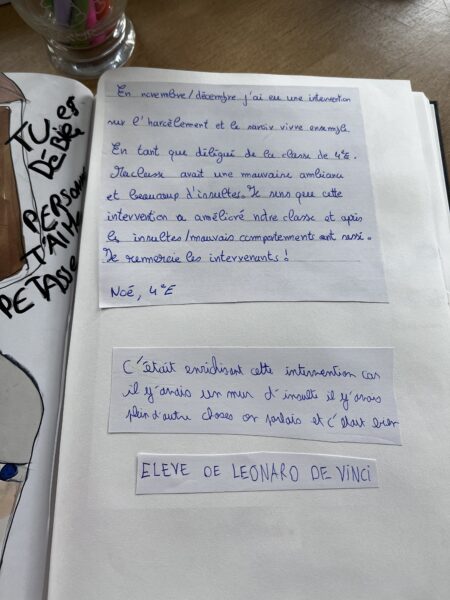 TU
DEBIES
PERSONN
T'AIME
PETASSE
En novembre/décembre j'ai eu une intervention
sur l'harcèlement et le savoir vivre ensemble.
En tant que délégué de la classe de 4°E.
Ma classe avait une mauvaise ambiance
et beaucoup d'insultes. Je sens que cette
intervention a amélioré notre classe et après
les insultes/mauvais comportements ont cessé.
Je remercie les intervenants !
Noé, 4°E
C'était enrichisent cette intervention car
il y'avais un mur d'insulte il y'avais
plein d'autre closes on parlais et c'était bien
ELEVE DE LEONARD DE VINCI